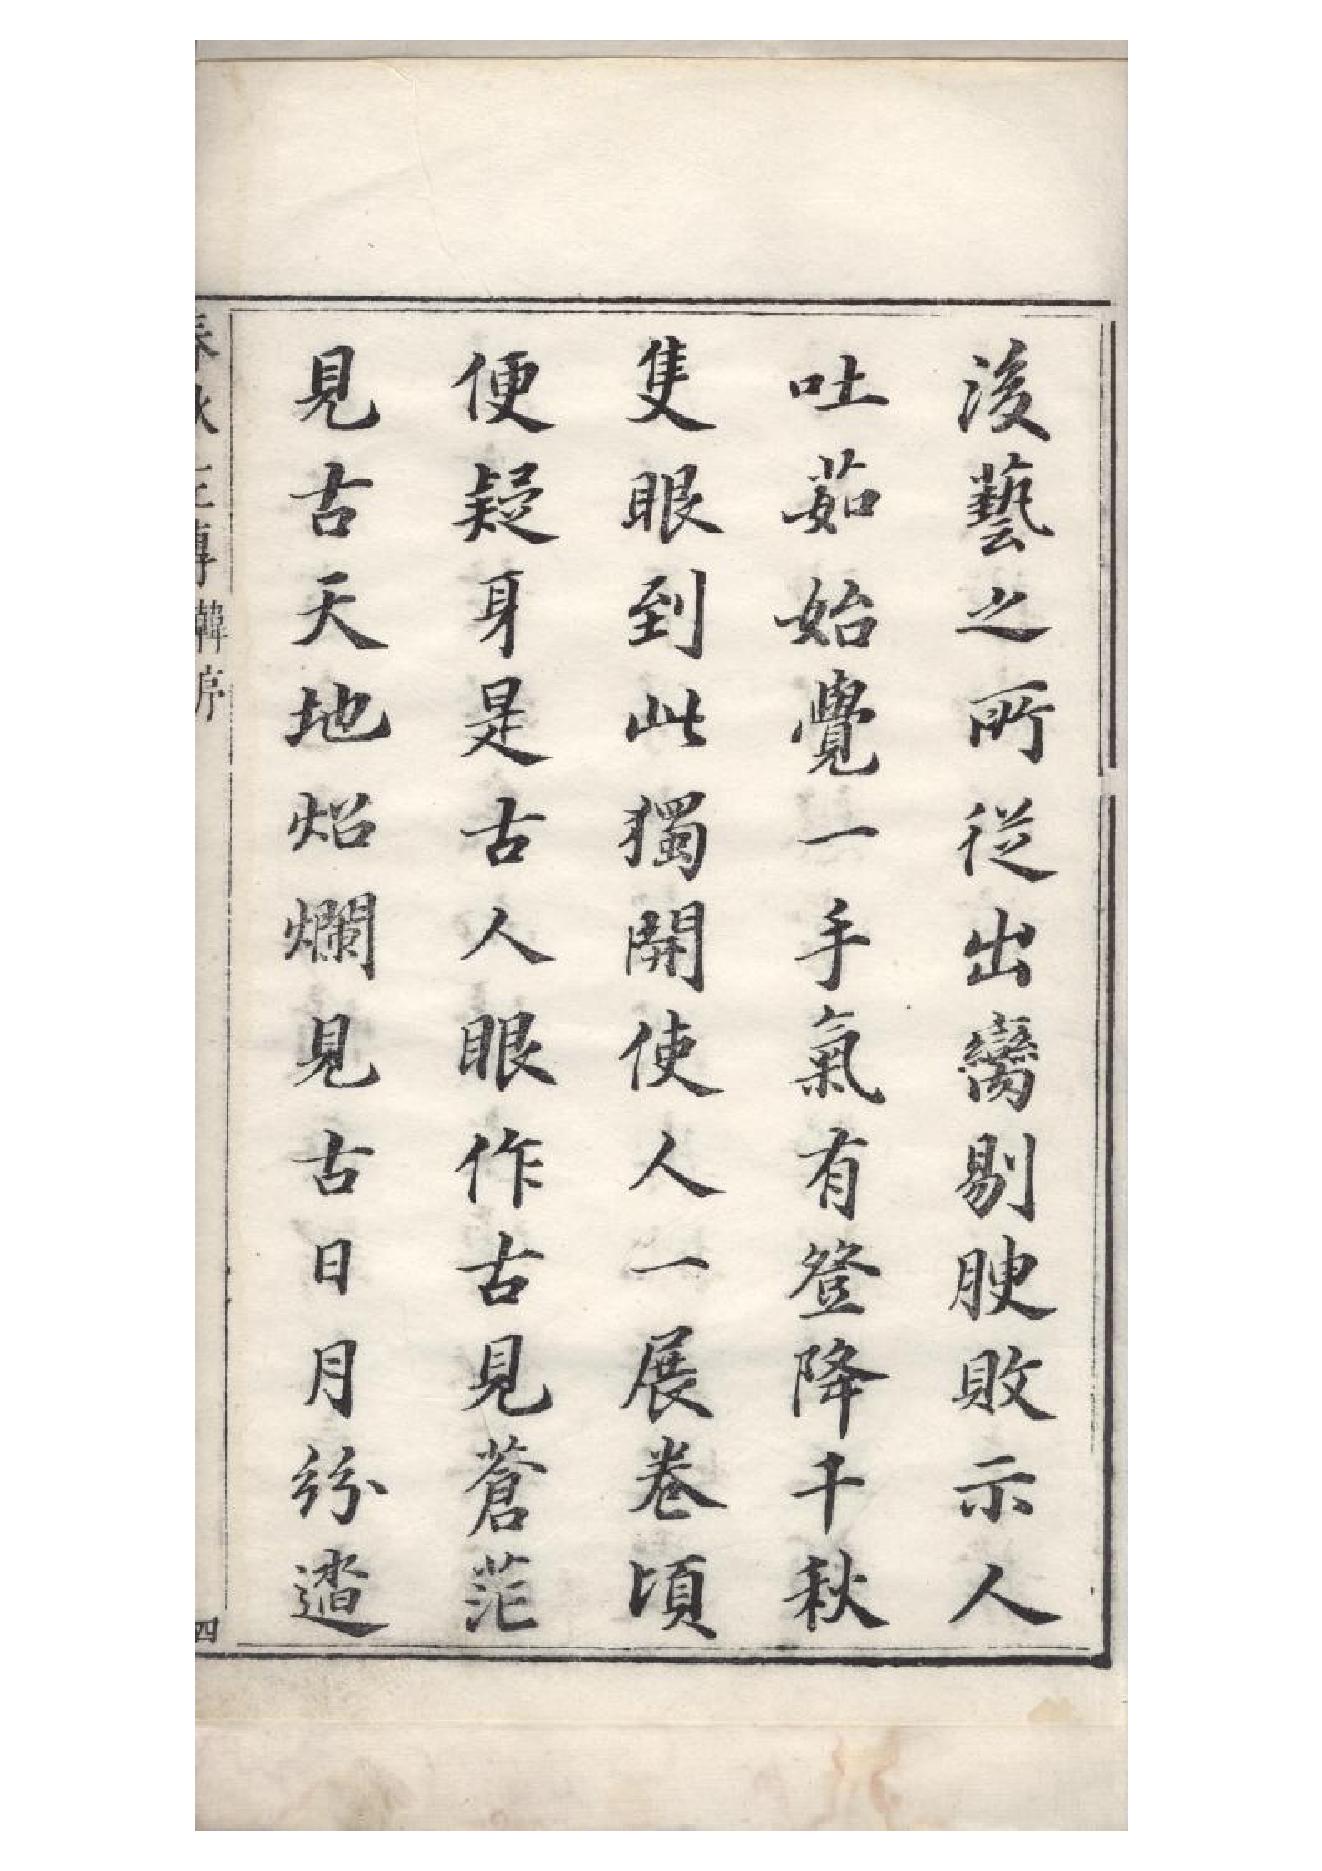 後藝之所從出臠剔腴敗示人
吐茹始覺一手氣有登降千秋
隻眼到此獨開使人一展卷頃
便疑身是古人眼作古見蒼茫
見古天地炤爛見古日月紛遝
春秋左傳韓序
四